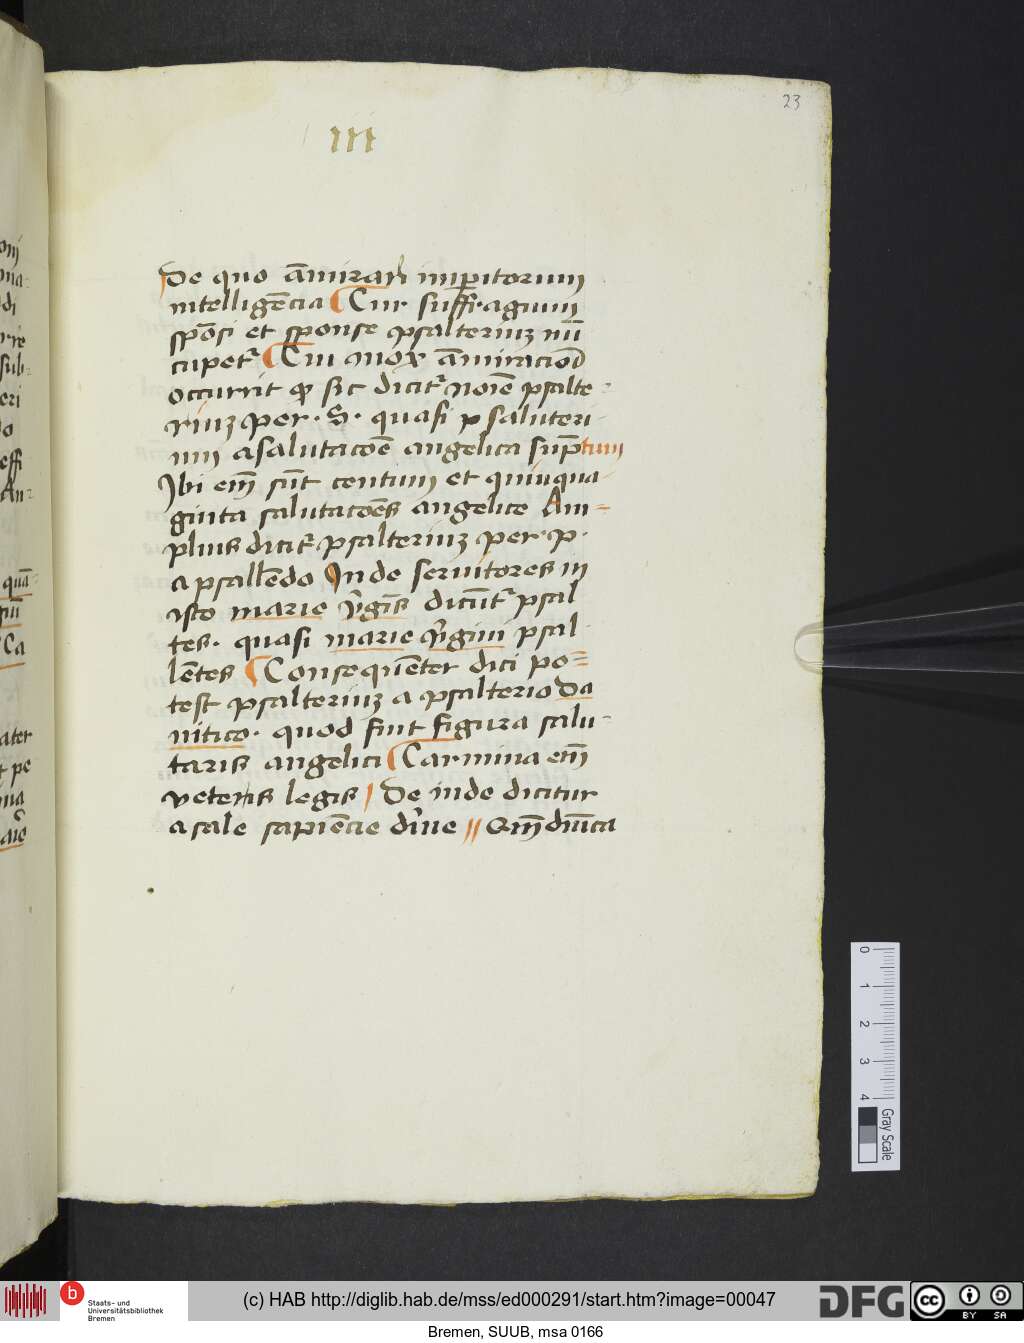 23
III
De quo a᷑mirari imꝑitorum
intellige᷑cia Cur suffragium
spo᷑si et sponse psalterium nu᷑
cupet᷑ Cui mox a᷑miracio᷑
occurrit ꝙ sic dicit᷑ noi᷑e psalte-
rium per · S · quasi p saluteri-
um a salutaco᷑e angelica sup᷑tum
Ibi em᷑ su᷑t centum et quinqua-
ginta salutaco᷑es angelice Am-
plius dicit᷑ psalterium per · p ·
a psalle᷑do Inde seruitores in
isto marie v᷑gi᷑s dicu᷑t᷑ psal
tes · quasi marie v᷑gini psal-
le᷑tes Conseque᷑ter dici po=
test psalterium a psalterio da
uitico · quod fuit figura salu-
taris angelici Carmina eni᷑
veteris legis De inde dicitur
a sale sapie᷑cie di᷑ne Qm᷑ diui᷑ta
oni
di
sub-
eri
effi
An-
quā
Ca
ater
t pe
0
1
2
3
4
Gray Scale
b
Staats- und
Universitätsbibliothek
Bremen
(c) HAB http://diglib.hab.de/mss/ed000291/start.htm?image=00047
DFG
cc
BY SA
Bremen, SUUB, msa 0166